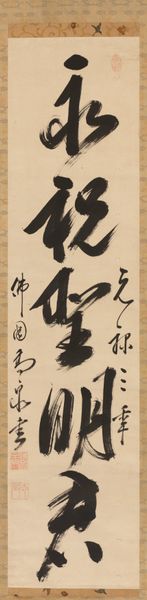 元祿三年
永祝聖明君
佛國高泉書